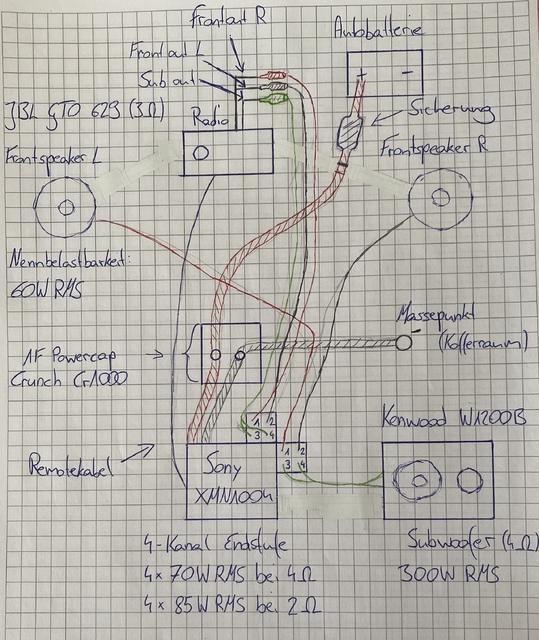 Frontout R
Autobatterie
Frontout L
Sub out
+ -
JBL GTO 629 (3Ω)
Radio
Sicherung
Frontspeaker L
Frontspeaker R
Nennbelastbarkeit:
60W RMS
Massepunkt
-
(Kofferraum)
1F Powercap
Crunch Cr1000
1 2
3 4
Kenwood W1200B
1 2
3 4
Remotekabel
Sony
XMN1004
4-Kanal Endstufe
Subwoofer (4Ω)
4x 70W RMS bei 4Ω
300W RMS
4x 85W RMS bei 2Ω